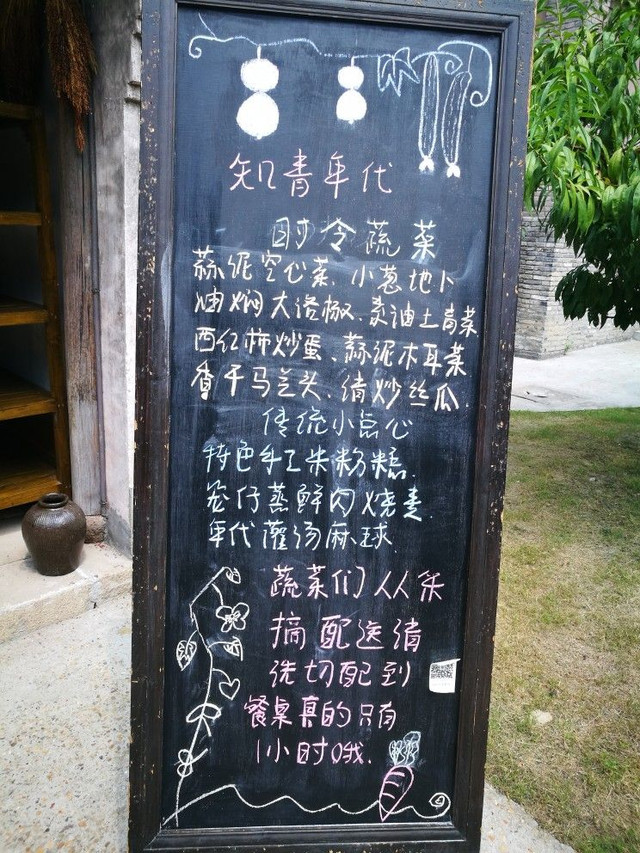 知青年代
时令蔬菜
蒜泥空心菜、小葱地卜
油焖大洛椒、麦油土高菜
西红柿炒蛋、蒜泥木耳菜
香干马兰头、清炒丝瓜.
传统小点心
特色手工米粉糕.
笼仔蒸鲜肉烧麦.
年代灌汤麻球.
蔬菜们从采
摘配送清
洗切配到
餐桌真的只有
1小时哦.